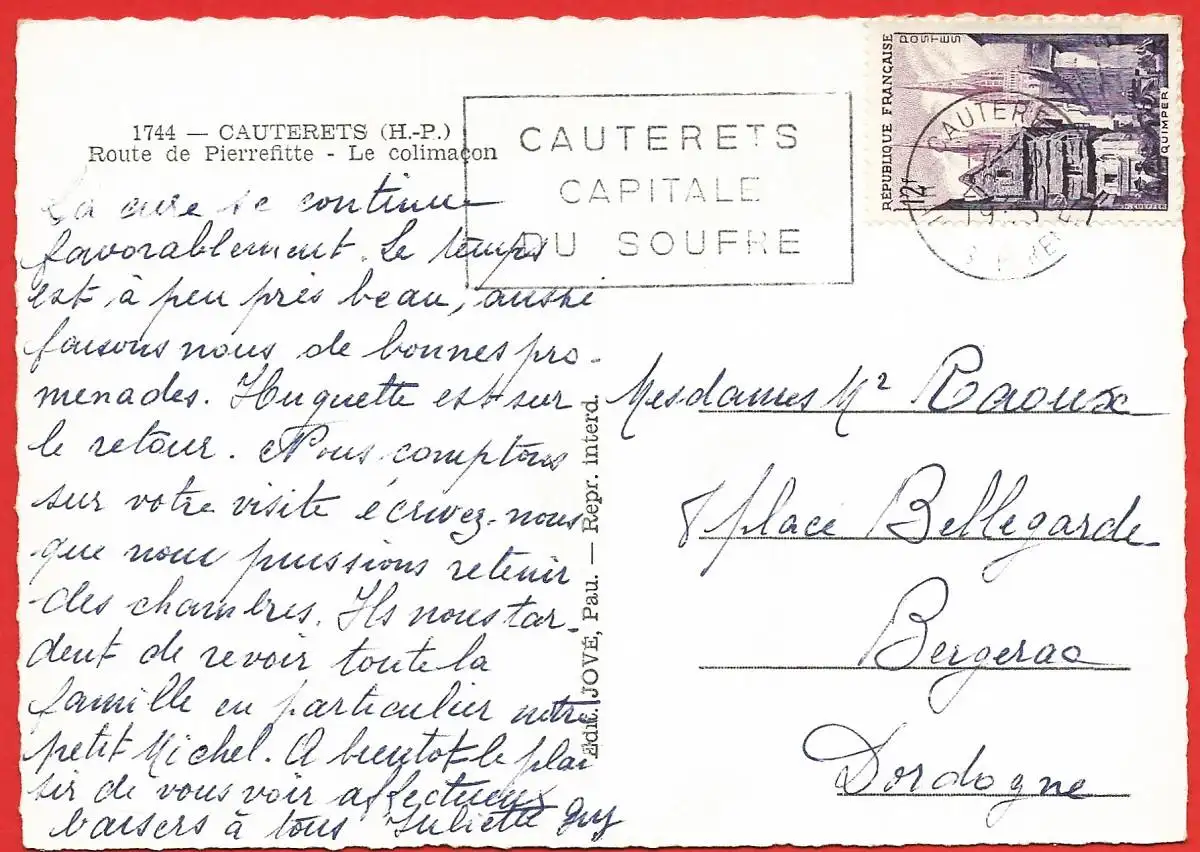 1744 — CAUTERETS (H.-P.)
Route de Pierrefitte - Le colimaçon
La cure se continue
favorablement. Le temps
est à peu près beau, aussi
faisons nous de bonnes pro-
menades. Huguette est sur
le retour. Nous comptons
sur votre visite écrivez-nous
que nous puissions retenir
des chambres. Ils nous tar-
dent de revoir toute la
famille en particulier notre
petit Michel. A bientot le plai
sir de vous voir affectueux
baisers à tous Juliette guy
Edit. JOVÉ, Pau. — Repr. interd.
CAUTERETS
CAPITALE
DU SOUFRE
RÉPUBLIQUE FRANÇAISE
POSTES
12f
QUIMPER
CAUTERE
Mesdames Mr Raoux
8 place Bellegarde
Bergerac
Dordogne